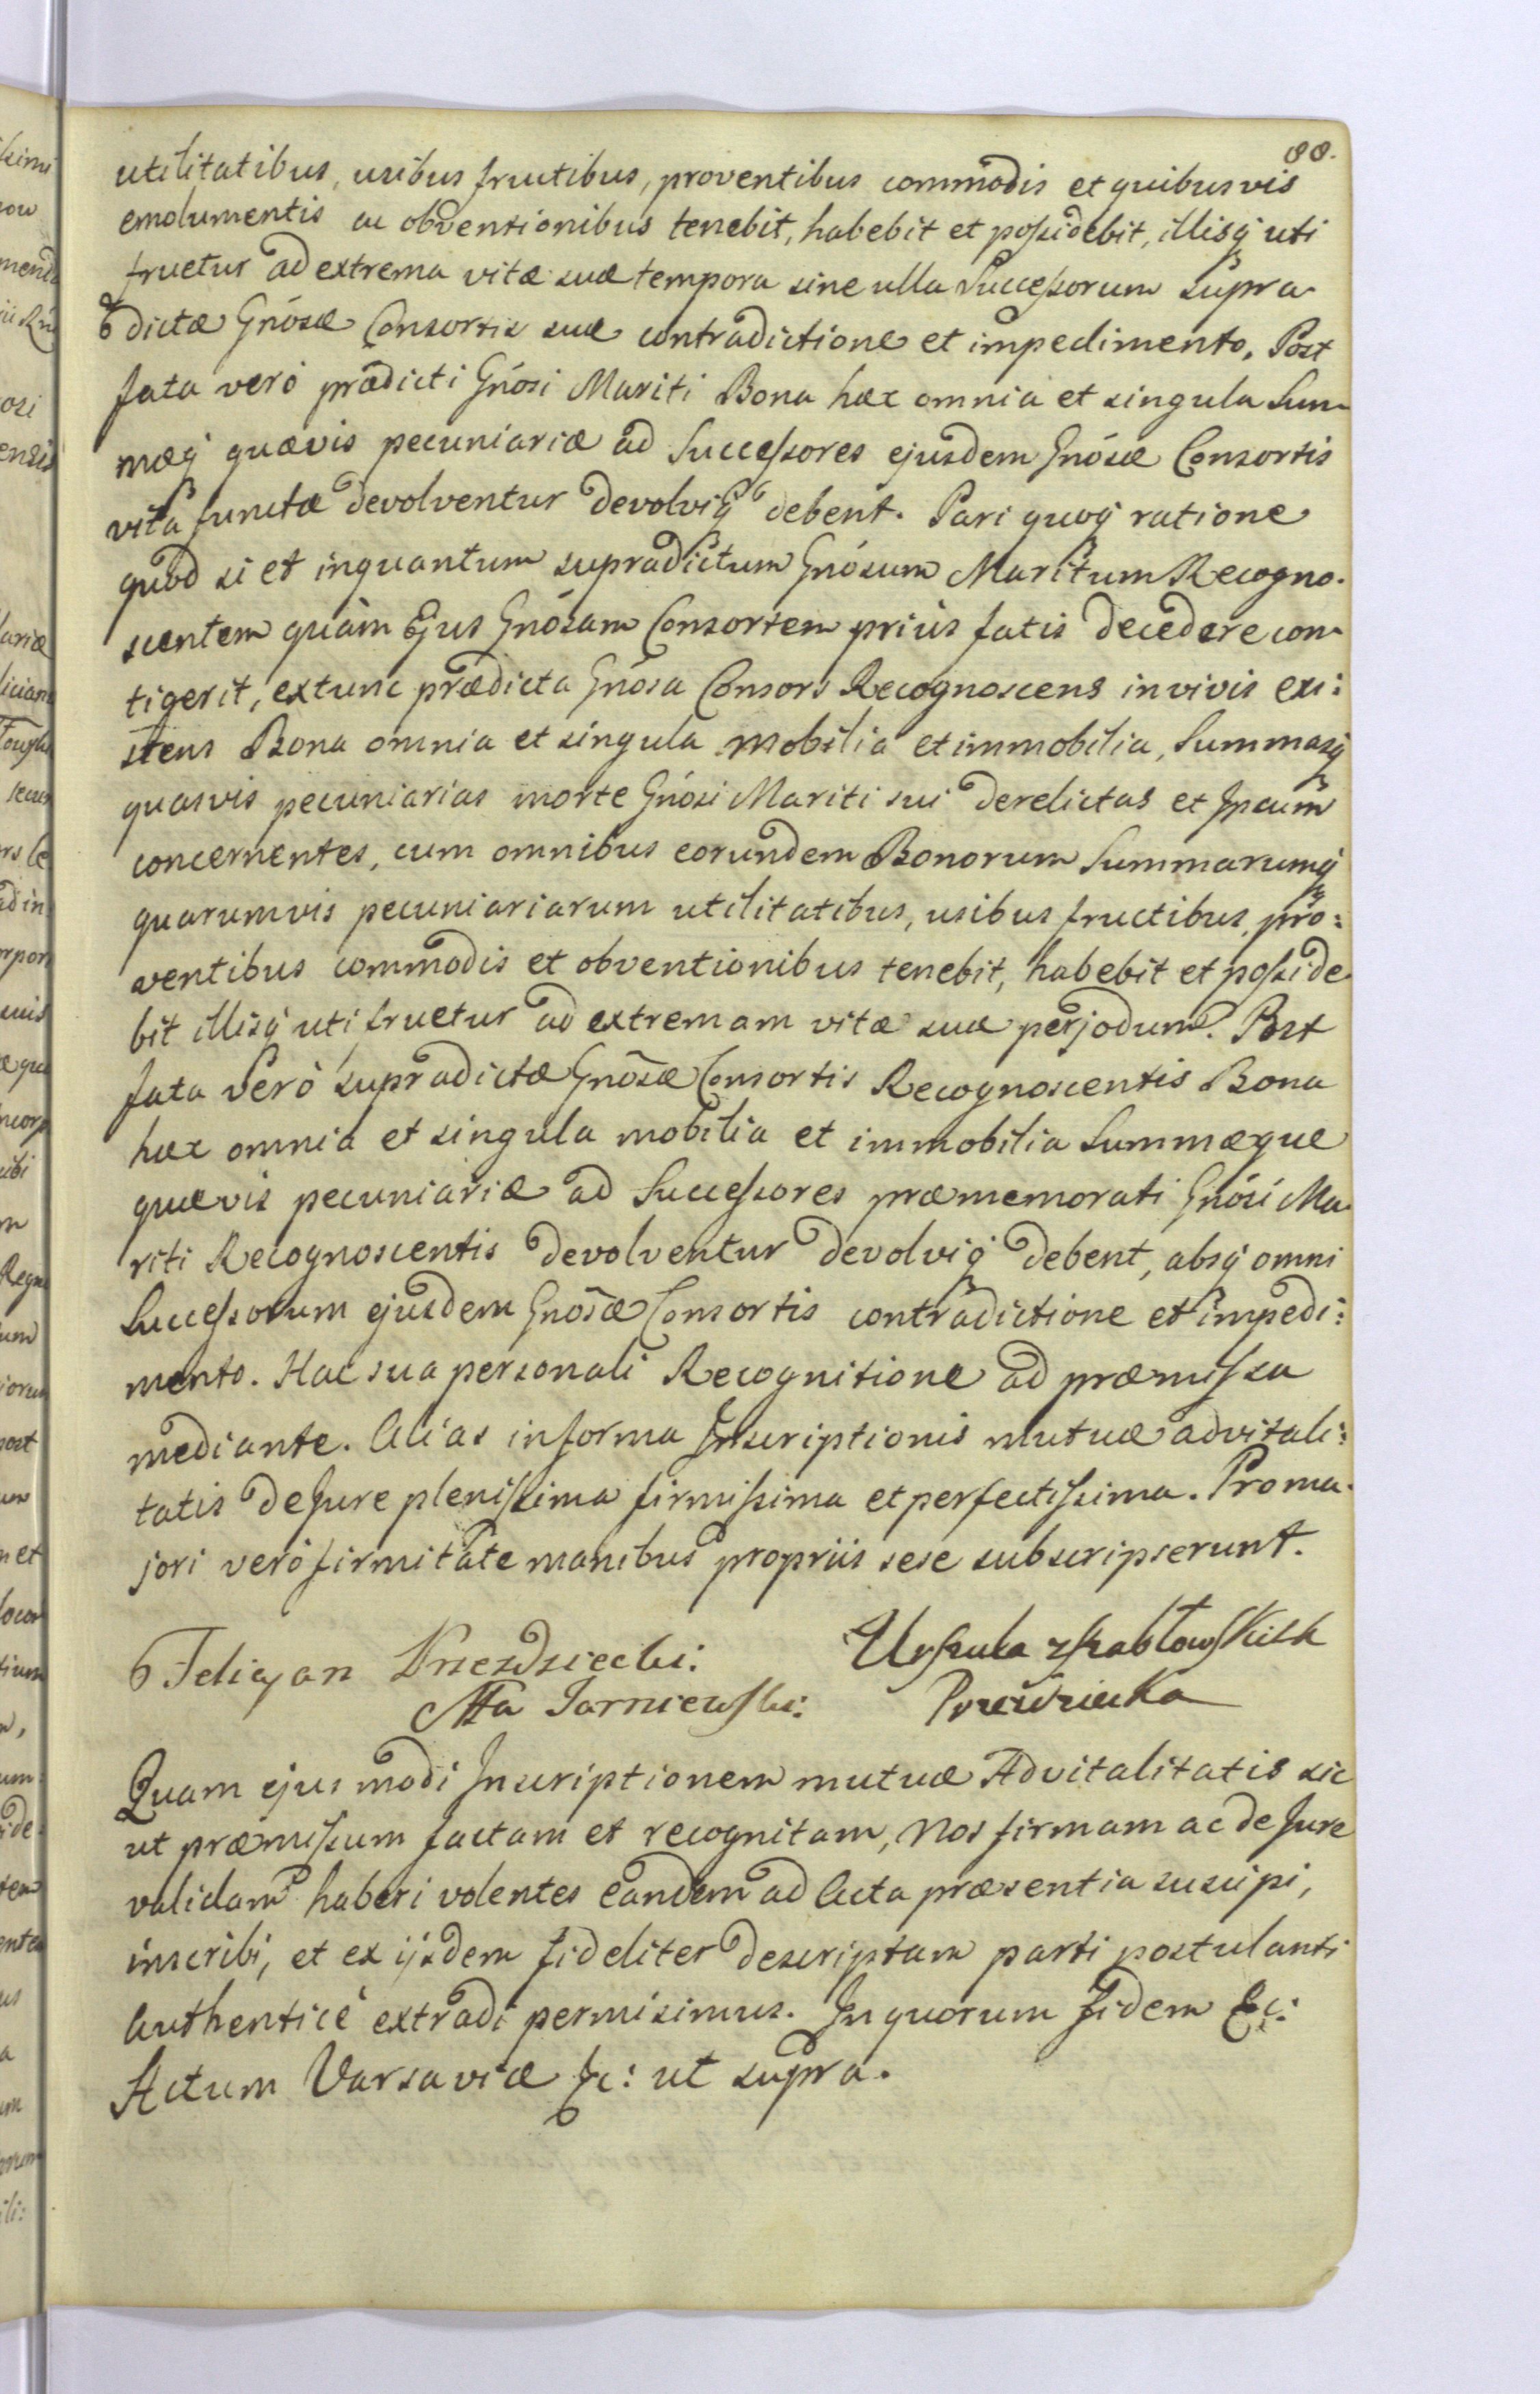 88.
utilitatibus, usibus fructibus, proventibus commodis et quibusvis
emolumentis ac obventionibus tenebit, habebit et possidebit, illisq́ uti
fruetur ad extrema vitæ suæ tempora sine ulla Successorum supra
dictæ Gnósæ Consortis suæ contradictione et impedimento. Post
fata verò prædicti Gnósi Mariti Bona hæc omnia et singula Sum
mæq́ quævis pecuniariæ ad Successores ejusdem Gnósæ Consortis
vita functæ devolventur devolviq́ debent. Pari quoq́ ratione
quod si et inquantum supradictum Gnósum Maritum Recogno.
scentem quàm Ejus Gnósam Consortem priùs fatis decedere con
tigerit, extunc prædicta Gnósa Consors Recognoscens in vivis exi:
stens Bona omnia et singula mobilia et immobilia, Summasq́
quasvis pecuniarias morte Gnósi Mariti sui derelictas et Ipsum
concernentes, cum omnibus eorundem Bonorum Summarumq́
quarumvis pecuniariarum utilitatibus, usibus fructibus, pro:
ventibus commodis et obventionibus tenebit, habebit et posside
bit illisq́ uti fruetur ad extremam vitæ suæ perjodum. Post
fata verò supradictæ Gnósæ Consortis Recognoscentis Bona
hæc omnia et singula mobilia et immobilia Summæque
quævis pecuniariæ ad Successores præmemorati Gnósi Ma
riti Recognoscentis devolventur devolviq́ debent, absq́ omni
Successorum ejusdem Gnósæ Consortis contradictione et impedi:
mento. Hac sua personali Recognitione ad præmissa
mediante. Alias in forma Inscriptionis mutuæ advitali:
tatis de Jure plenissima firmissima et perfectissima. Pro ma.
jori verò firmitate manibus propriis sese subscripserunt.
Felicyan Przezdziecki. Urszula z Szabłowskich
Sta Jarniewski: Przezdziecka
Quam ejusmodi Inscriptionem mutuæ Advitalitatis sic
ut præmissum factam et recognitam, Nos firmam ac de Jure
validam haberi volentes eandem ad Acta præsentia suscipi,
inscribi, et ex ijsdem fideliter descriptam parti postulanti
Authenticè extradi permisimus. In quorum fidem &c:
Actum Varsaviæ &c: ut supra.